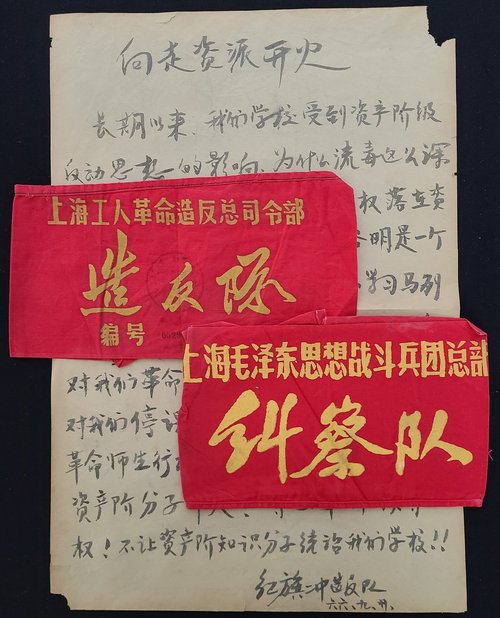 向走资派开火
长期以来，我们学校受到资产阶级
反动思想的影响，为什么流毒这么深
权落在资
明是一个
学习马列
上海工人革命造反总司令部
造反队
编号
上海毛泽东思想战斗兵团总部
纠察队
对我们革命
对我们停课
革命师生行
资产阶分子
权！不让资产阶知识分子统治我们学校！！
红旗二中造反队
六六.九.廿.